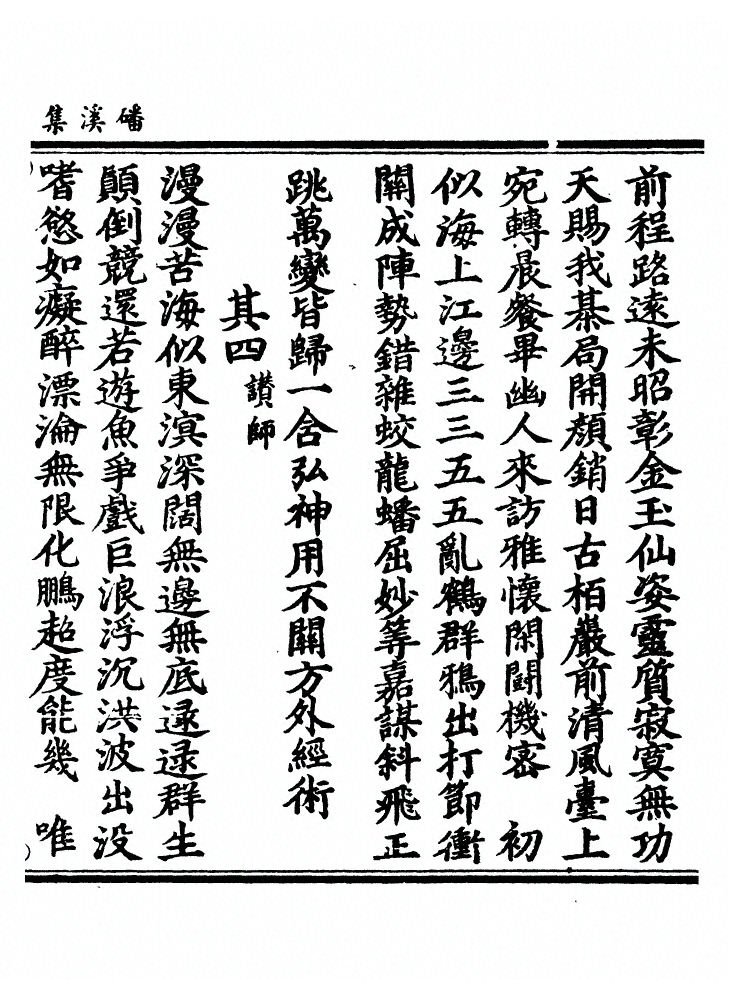 磻溪集
前程路遠未昭彰金玉仙姿靈質寂寞無功
天賜我棊局開顏銷日古栢巖前清風臺上
宛轉晨餐畢幽人來訪雅懷閑鬪機密　初
似海上江邊三三五五亂鶴群鴉出打節衝
關成陣勢錯雜蛟龍蟠屈妙筭嘉謀斜飛正
跳萬變皆歸一含弘神用不關方外經術
其四讃師
漫漫苦海似東溟深闊無邊無底逯逯群生
顛倒競還若遊魚爭戲巨浪浮沉洪波出没
嗜慾如癡醉漂淪無限化鵬超度能幾　唯